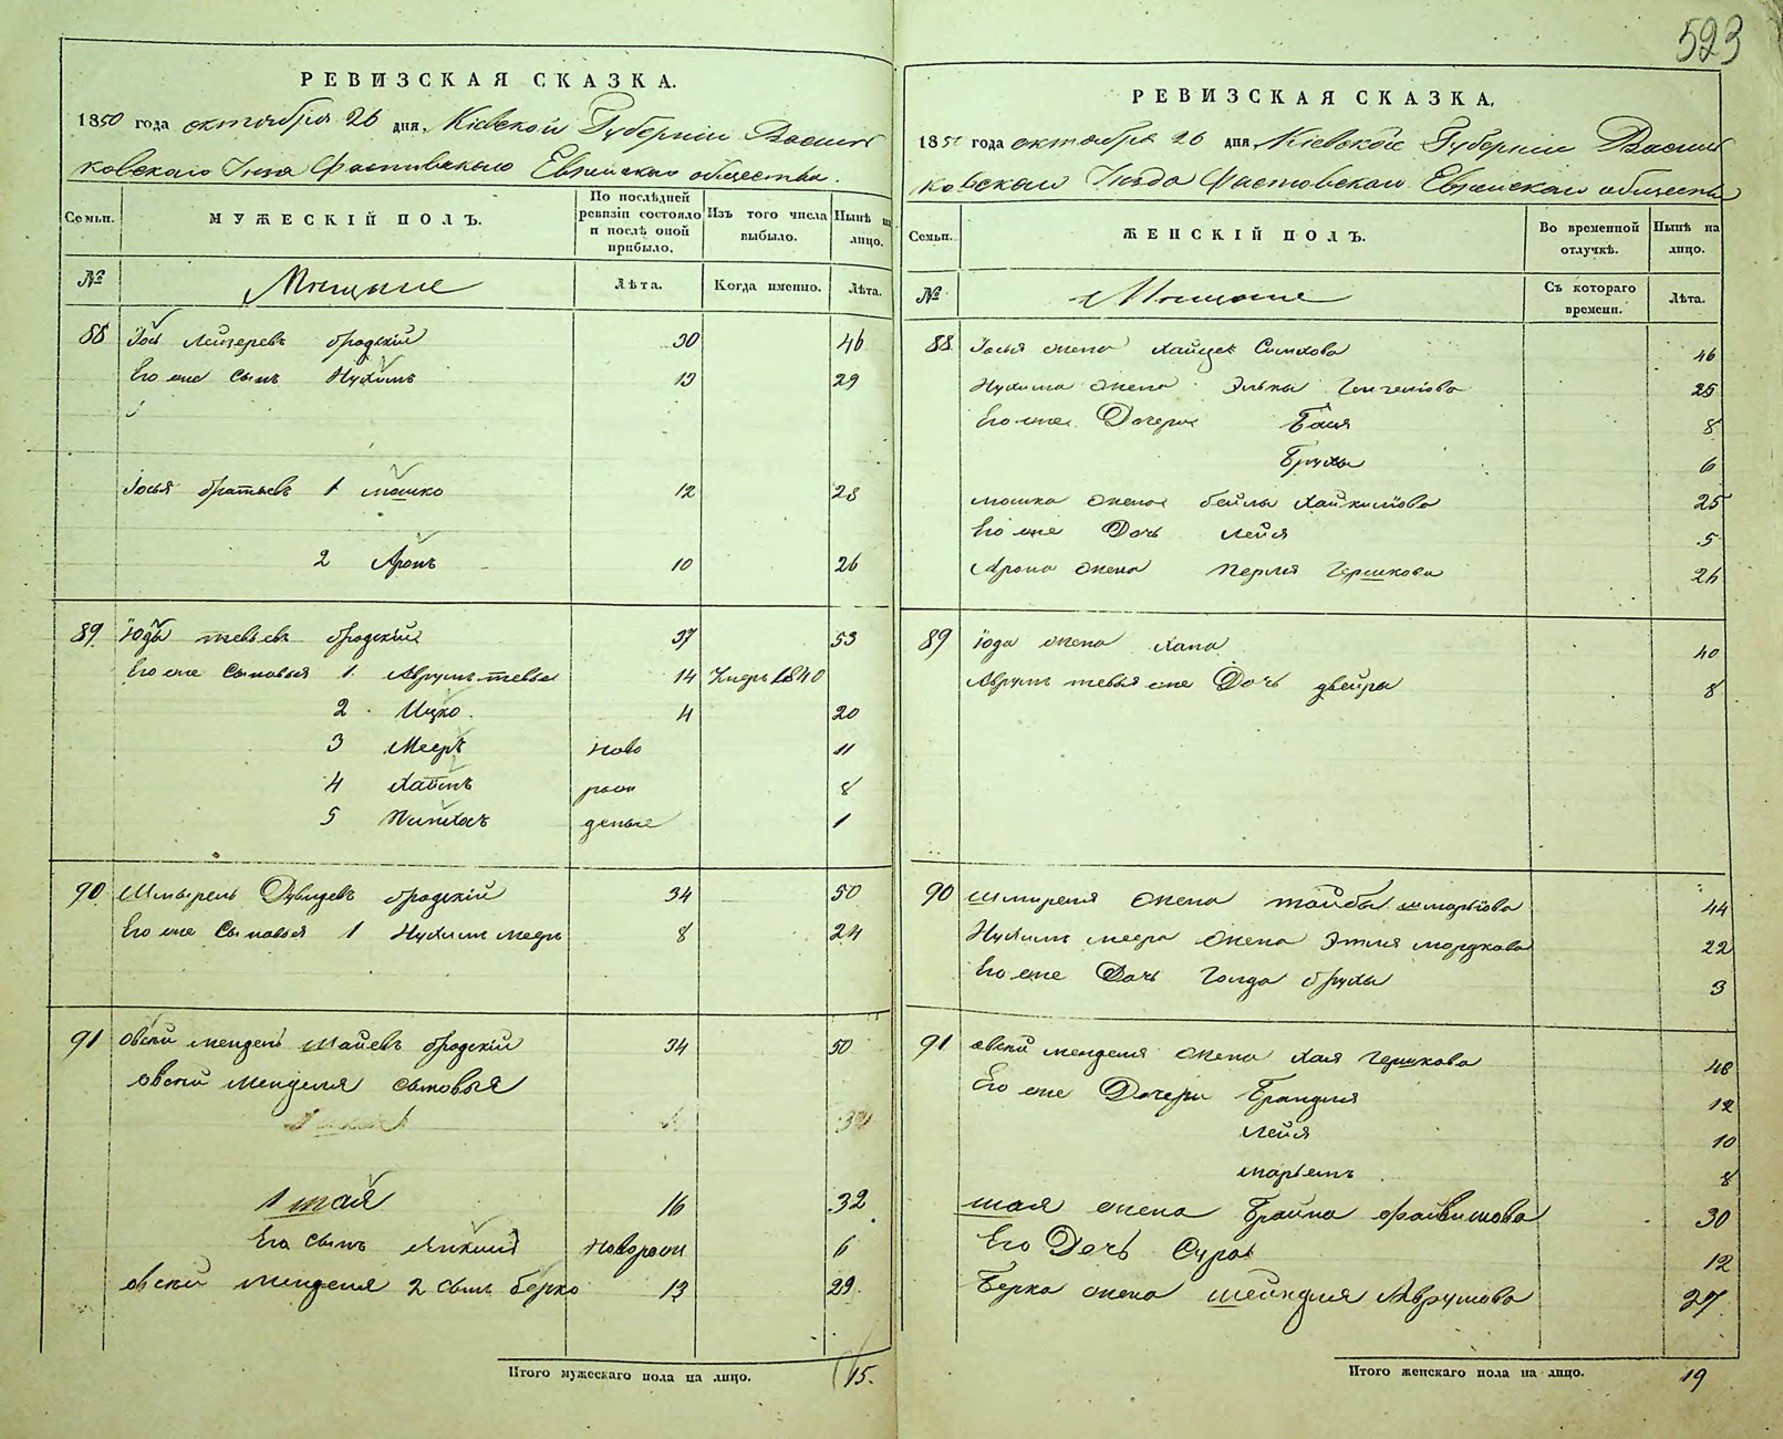 523
РЕВИЗСКАЯ СКАЗКА.
1850 года октября 26 дня, Кіевской Губерніи Василь
ковскаго Уезда Фастовскаго Еврейскаго общества.
Семьи.
МУЖЕСКІЙ ПОЛЪ.
По послѣдней ревизіи состояло и послѣ оной прибыло.
Изъ того числа выбыло.
Нынѣ на лицо.
№
Мещане
Лѣта.
Когда именно.
Лѣта.
88 Іось Лейзеровъ Бродскій 30 46
Его же сынъ Нухимъ 13 29
Іося братьевъ 1 Мошко 12 28
2 Аронъ 10 26
89 Юда Тевьевъ Бродскій 37 53
Его же сыновья 1. Аврумъ Тевье 14 Умеръ 1840
2 Ицко 4 20
3 Мееръ ново 11
4 Хаимъ рож 8
5 Пинхасъ деные 1
90 Шмерель Дувидевъ Бродскій 34 50
Его же сыновья 1 Нухимъ Мееръ 8 24
91 Овсей Мендель Шаевъ Бродскій 34 50
Овсей Менделя сыновья
1 Шая 16 32
Его сынъ новорож 6
Овсей Менделя 2 сынъ Берко 13 29
Итого мужескаго пола на лицо. 15.
РЕВИЗСКАЯ СКАЗКА.
1850 года октября 26 дня Кіевской Губерніи Василь
ковскаго Уезда Фастовскаго Еврейскаго общества
Семьи.
ЖЕНСКІЙ ПОЛЪ.
Во временной отлучкѣ.
Нынѣ на лицо.
№
Мещане
Съ котораго времени.
Лѣта.
88 Іося жена Симхова 46
Нухима жена Элька 25
Его же Дочери Бася 8
Бруха 6
Мошка жена Бейла 25
Его же Дочь Лейя 5
Арона жена Перля Гершкова 26
89 Юда жена Хана 40
Аврумъ Тевья же Дочь Двейра 8
90 Шмиреля жена Тайба Шмарьіова 44
Нухимъ Меера жена Этля Мордкова 22
Его же Дочь Голда Бруха 3
91 Овсей Менделя жена Хая Гершкова 48
Его же Дочери Брандля 12
Лейя 10
Марьемъ 8
Шая жена Брайна Файвишова 30
Его Дочь Сура 12
Берка жена Шейндля Аврумова 27
Итого женскаго пола на лицо. 19